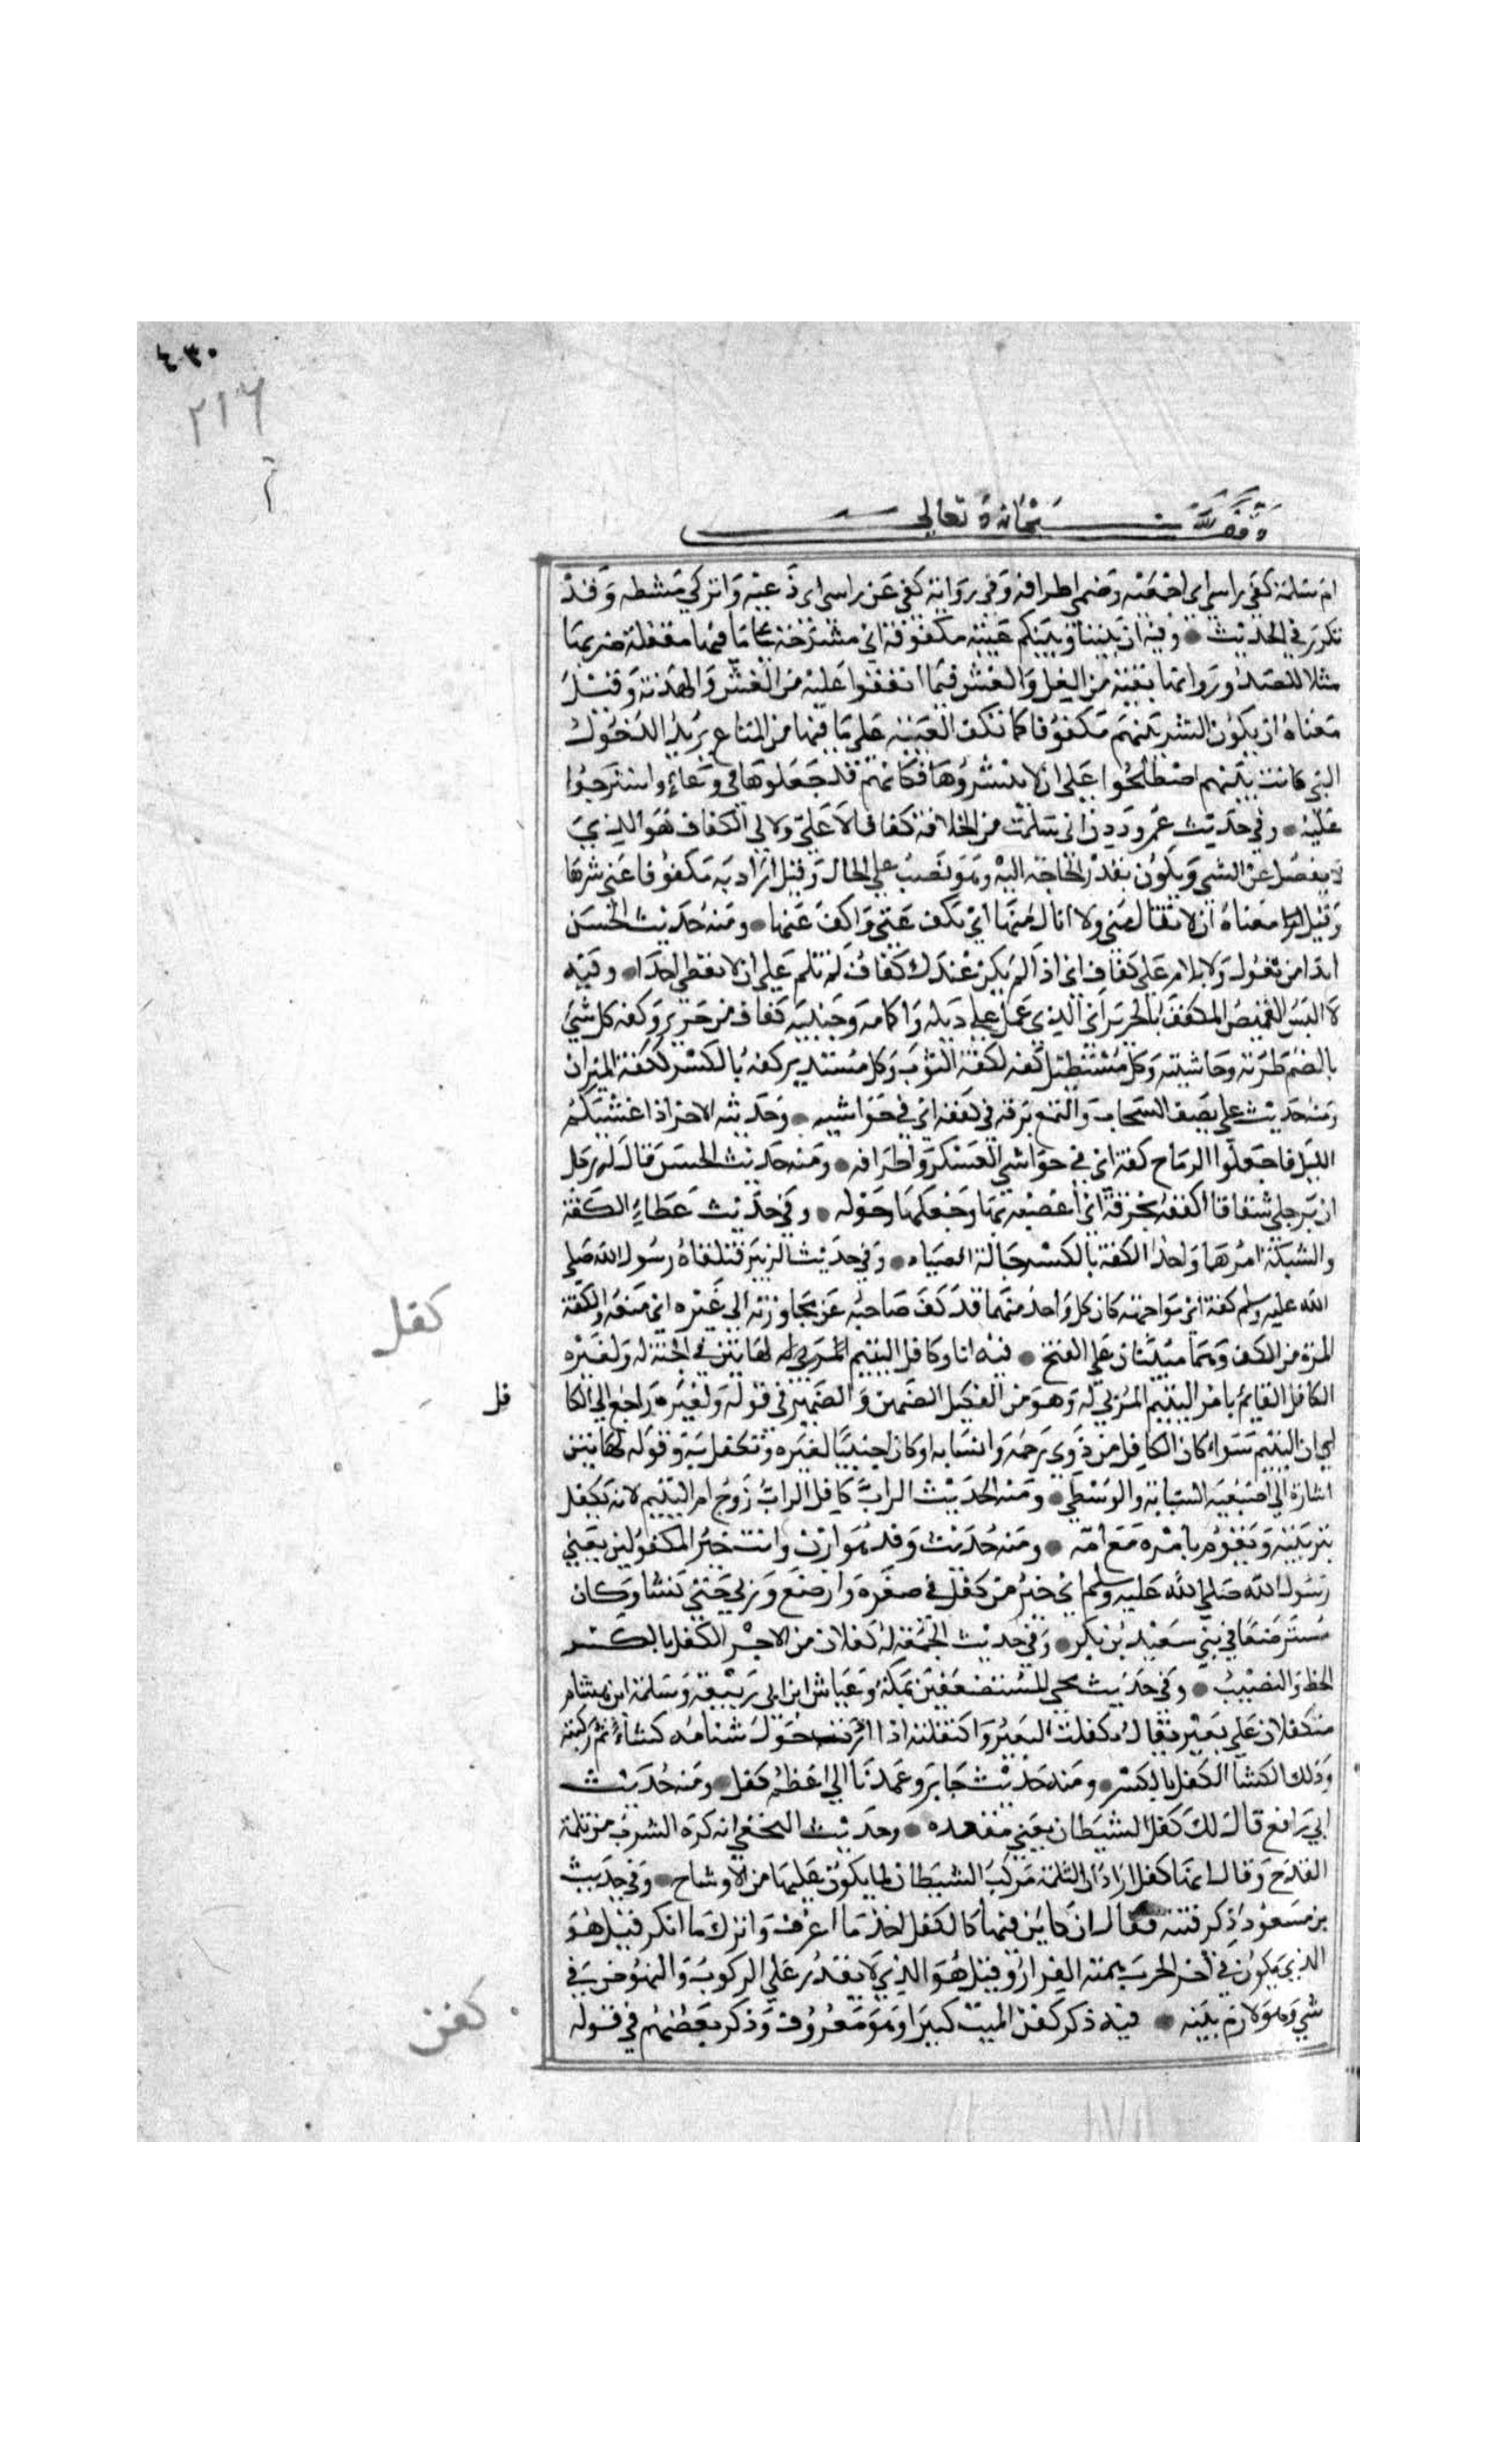 ٤٣٠
٢١٦
وقف لله سبحانه وتعالى
ام سلمة كفي راسي اي اجمعيه وضمي اطرافه وفي رواية كفي عن راسي اي دعيه واتركي مشطه وقد
تكرر في الحديث وفيه ان بيننا وبينكم عيبة مكفوفة اي مشرجة على ما فيها مقفلة ضربها
مثلا للصدور وانها نقية من الغل والغش فيما اتفقوا عليه من الغش والهدنة وقيل
معناه ان يكون الشر بينهم مكفوفا كما تكف العيبة على ما فيها من المتاع يريد الدخول
التي كانت بينهم اصطلحوا على ان لا ينشروها فكانهم قد جعلوها في وعاء واسترجوا
عليه وفي حديث عمر وددت اني سلمت من الخلافة كفافا لا علي ولا لي الكفاف هو الذي
لا يفضل عن الشي ويكون بقدر الحاجة اليه وهو نصب على الحال وقيل اراد به مكفوفا عني شرها
وقيل معناه ان لا تنال مني ولا انال منها اي تكف عني واكف عنها ومنه حديث الحسن
ابدا من تعول ولا تلام على كفاف اي اذا لم يكن عندك كفاف لم تلم على ان لا تعطي احدا وفيه
لا البس القميص المكفف بالحرير اي الذي عمل على ذيله واكمامه وجيبه كفاف من حرير وكفه كل شي
بالضم طرته وحاشيته وكل مستطيل كفه لكفة الثوب وكل مستدير كفه بالكسر ككفة الميزان
ومنه حديث علي يصف السحاب والتمع برقه في كففه اي في حواشيه وحديثه الاخر اذا غشيكم
الليل فاجعلوا الرماح كفة اي في حواشي العسكر واطرافه ومنه حديث الحسن قال له رجل
ان برجلي شقاقا اكففه بخرقة اي اعصبه بها واجعلها حوله وفي حديث عطاء الكفة
والشبكة امرهما واحد الكفة بالكسر حبالة الصياد وفي حديث الزبير فتلقاه رسول الله صلى
الله عليه وسلم كفة اي مواجهة كان كل واحد منهما قد كف صاحبه عن مجاوزته الى غيره اي منعه والكفة
المرة من الكف وهما مبنيان على الفتح فيه انا وكافل اليتيم كهاتين في الجنة له ولغيره
الكافل القايم بامر اليتيم المربي له وهو من الكفيل الضمين والضمير في قوله ولغيره راجع الى الكا
فل
الي ان اليتيم سواء كان الكافل من ذوي رحمه وانسابه او كان اجنبيا لغيره وتكفل به وقوله كهاتين
اشارة الى اصبعيه السبابة والوسطي ومنه الحديث الراب كافل الراب زوج ام اليتيم لانه يكفل
تربيته ويقوم بامره مع امه ومنه حديث وفد هوازن وانت خير المكفولين يعني
رسول الله صلى الله عليه وسلم اي خير من كفل في صغره وارضع وربي حتى نشا وكان
مسترضعا في بني سعد بن بكر وفي حديث الجمعة له كفلان من الاجر الكفل بالكسر
الحظ والنصيب وفي حديث مجي المستضعفين بمكة وعياش ابن ابي ربيعة وسلمة ابن هشام
متكفلان على بعير يقال تكفلت البعير واكتفلته اذا ادرت حول سنامه كساء ثم ركبته
وذلك الكسا الكفل بالكسر ومنه حديث جابر وعمدنا الى اعظم كفل ومنه حديث
ابي رافع قال ذلك كفل الشيطان يعني مقعده وحديث النخعي انه كره الشرب من ثلمة
القدح وقال انها كفل اراد ان الثلمة مركب الشيطان لما يكون عليها من الاوساخ وفي حديث
بن مسعود ذكر فتنة فقال اني كاين فيها كالكفل اخذ ما اعرف واترك ما انكر قيل هو
الذي يكون في اخر الحرب همته الفرار وقيل هو الذي لا يقدر على الركوب والنهوض في
شي فهو لازم بيته فيه ذكر كفن الميت كبيرا وهو معروف وذكر بعضهم في قوله
كفل
كفن